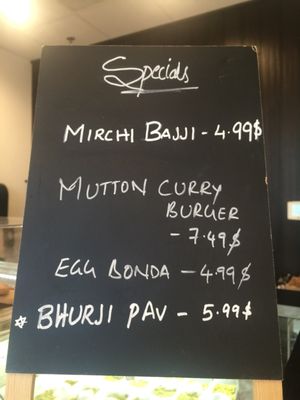 Specials
MIRCHI BAJJI - 4.99$
MUTTON CURRY
BURGER
- 7.49$
EGG BONDA - 4.99$
☆ BHURJI PAV - 5.99$